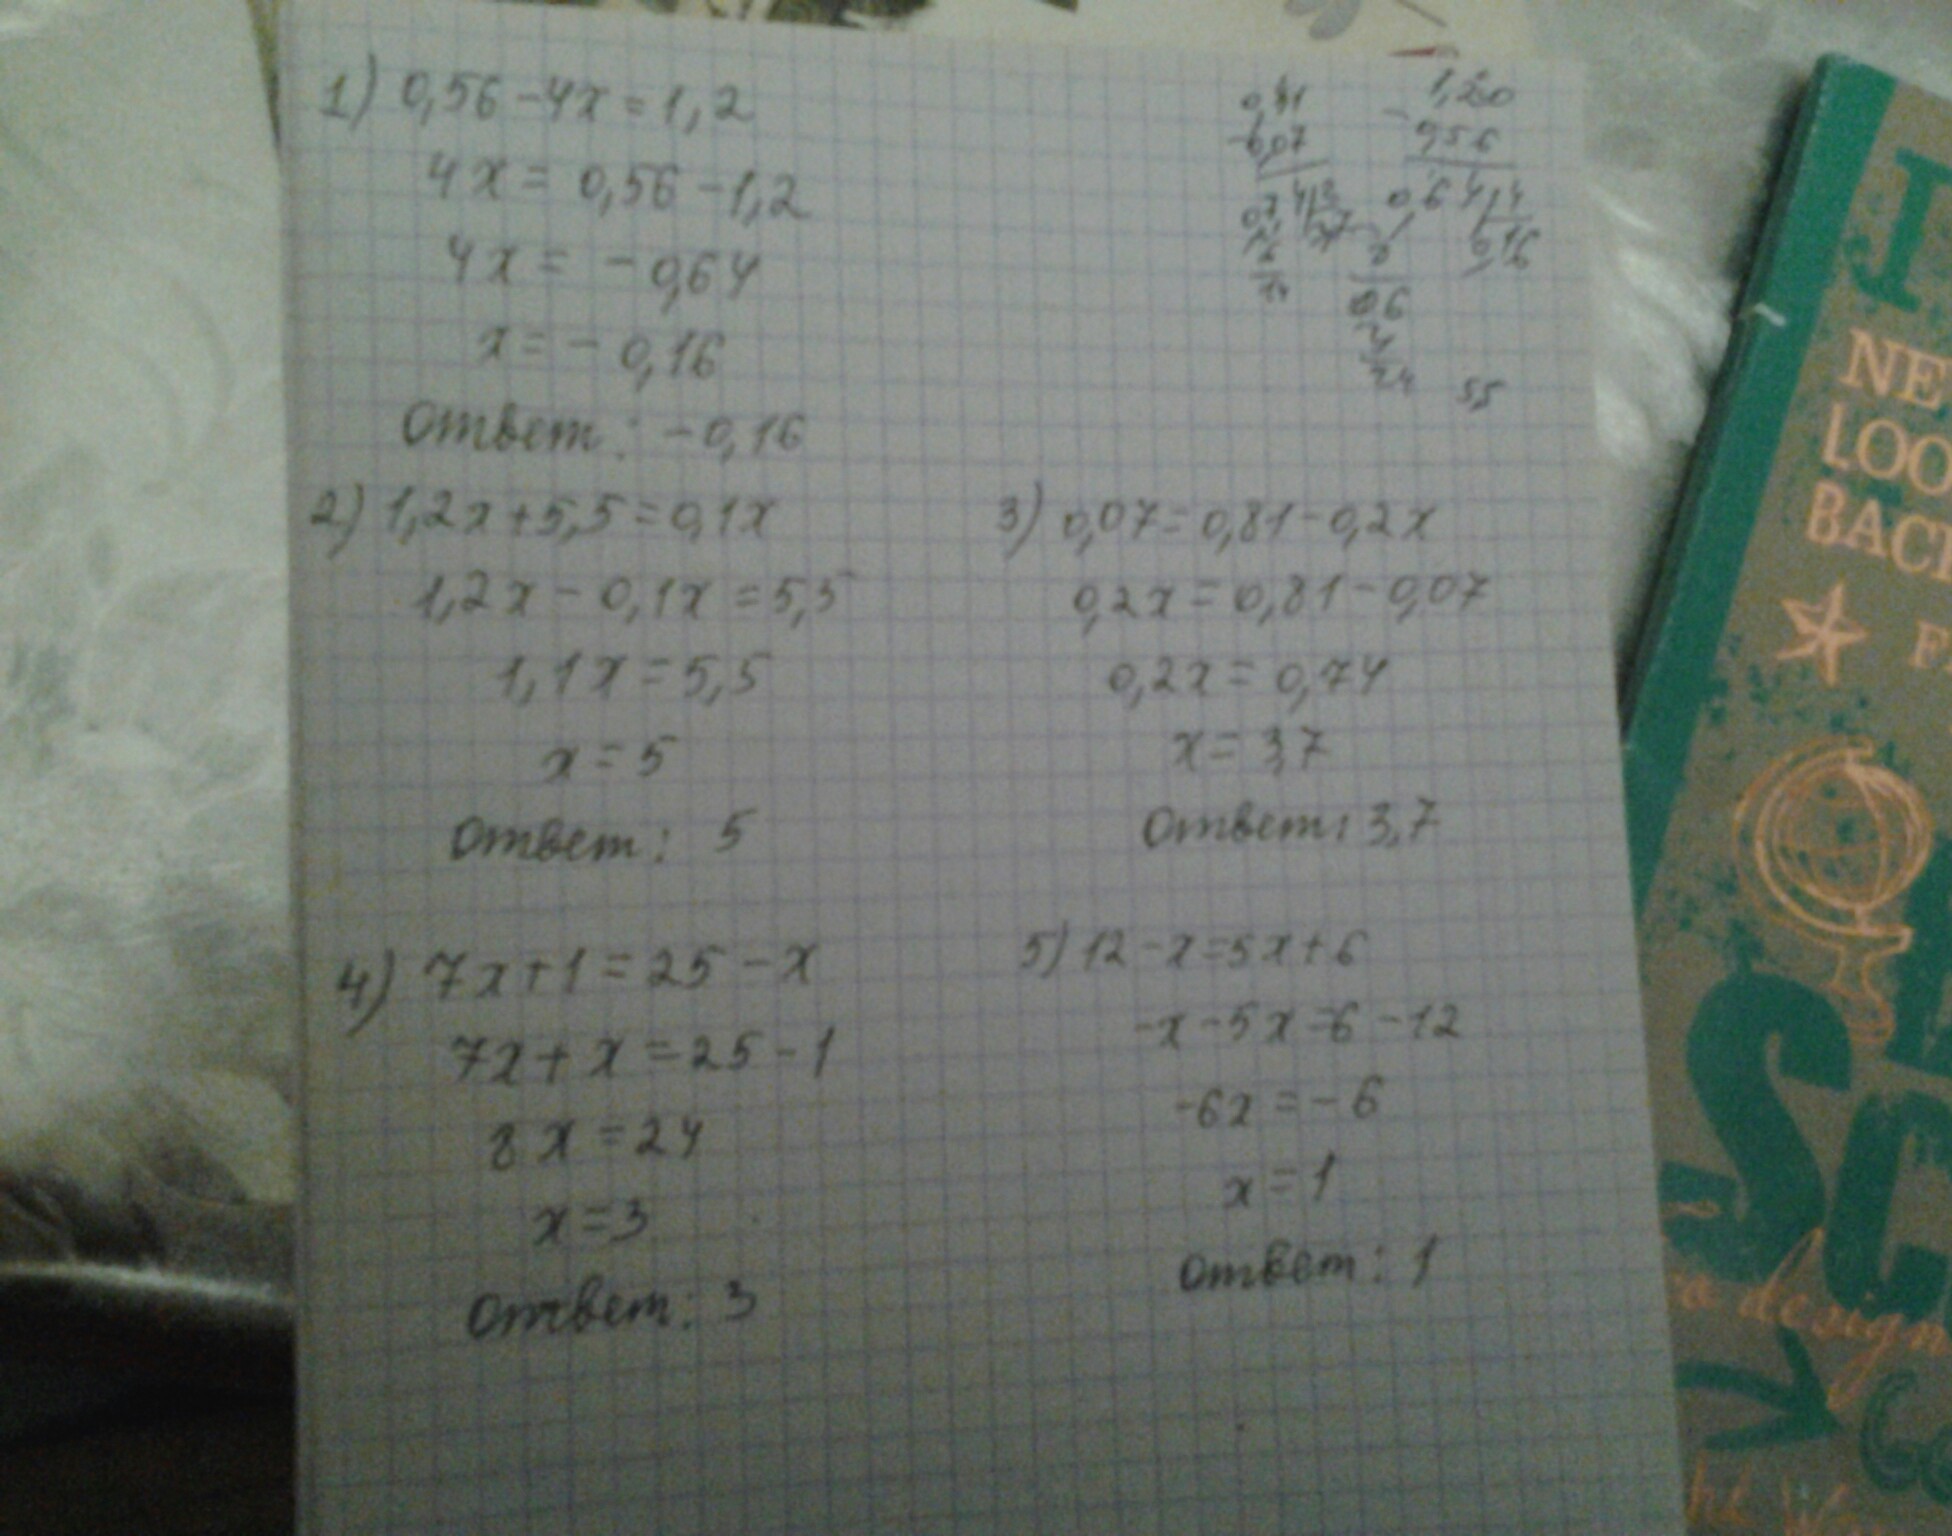 1) 0,56-4x=1,2
4x= 0,56-1,2
4x= -0,64
x=- 0,16
Ответ: -0,16
1,2
0,07
0,64
4
0,16
0,6
24
5,5
2) 1,2x+5,5=0,1x
1,2x-0,1x=5,5
1,1x=5,5
x=5
Ответ: 5
3) 0,07=0,81-0,2x
0,2x=0,81-0,07
0,2x=0,74
x=3,7
Ответ: 3,7
4) 7x+1=25-x
7x+x=25-1
8x=24
x=3
Ответ: 3
5) 12-x=5x+6
-x-5x=6-12
-6x=-6
x=1
Ответ: 1
NE
LOO
BACK